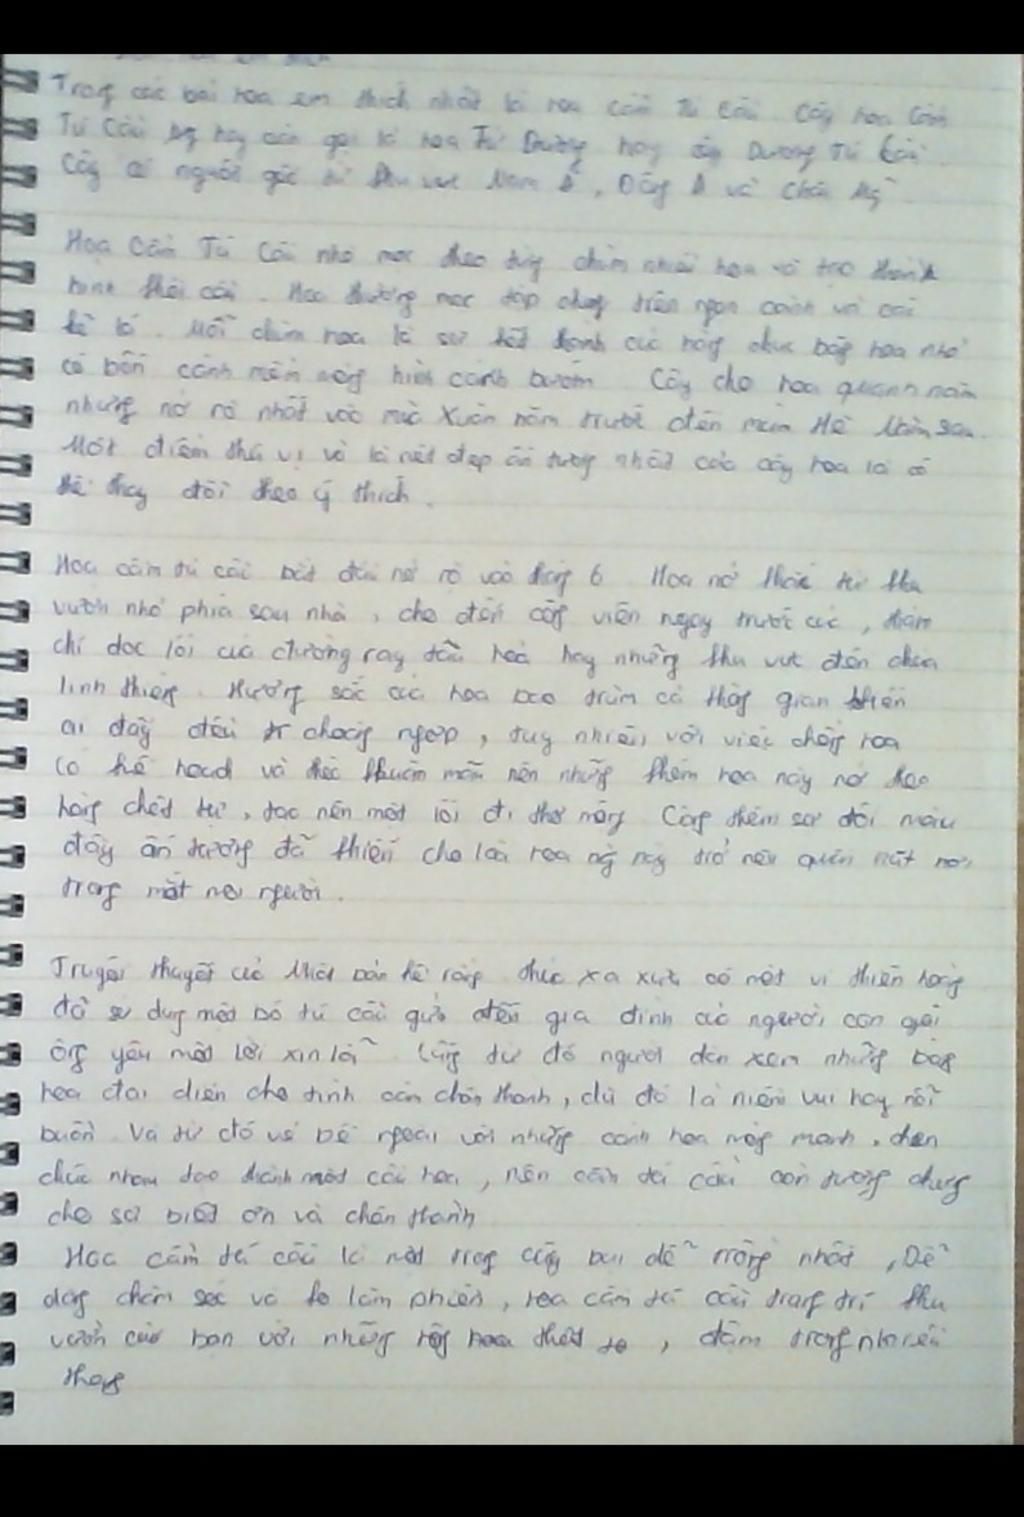 Trong các loài hoa em thích nhất là hoa Cẩm Tú Cầu. Cây hoa Cẩm
Tú Cầu hay còn gọi là hoa Tử Dương hay Dương Tú Cầu.
Cây có nguồn gốc từ khu vực Nam Á, Đông Á và Châu Mỹ.
Hoa Cẩm Tú Cầu nhỏ mọc theo từng chùm nhiều hoa và tạo thành
hình khối cầu. Hoa thường mọc tập chung trên ngọn cành và các
kẽ lá. Mỗi chùm hoa là sự kết thành của hàng chục bông hoa nhỏ
có bốn cánh mềm mỏng hình cánh bướm. Cây cho hoa quanh năm
nhưng nở rộ nhất vào mùa Xuân năm trước đến mùa Hè năm sau.
Một điểm thú vị và là nét đẹp ấn tượng nhất của cây hoa là có
thể thay đổi theo ý thích.
Hoa cẩm tú cầu bắt đầu nở rộ vào tháng 6. Hoa nở khắc từ khu
vườn nhỏ phía sau nhà, cho đến công viên ngay trước cửa, thậm
chí dọc lối của đường ray tầu hoả hay những khu vực đền chùa
linh thiêng. Hương sắc của hoa bao trùm cả không gian khiến
ai đấy đều choáng ngợp, tuy nhiên với việc chồng hoa
có kế hoạch và theo khuôn mẫu nên những thềm hoa này nở theo
hàng chật tự, tạo nên một lối đi thơ mộng. Cộng thêm sự đổi màu
đầy ấn tượng đã khiến cho loài hoa này trở nên quến rũ hơn
trong mắt mọi người.
Truyền thuyết của Nhật bản kể rằng thúc xa xưa có một vị thiên hoàng
đã sử dụng một bó tú cầu gửi đến gia đình của người con gái
ông yêu một lời xin lỗi. Cũng từ đó người dân xem những bông
hoa đại diện cho tình cảm chân thành, dù đó là niềm vui hay nỗi
buồn. Và từ đó vẻ bề ngoài với những cánh hoa mỏng manh, chen
chúc nhau tạo thành một cầu hoa, nên cẩm tú cầu còn tượng chưng
cho sự biết ơn và chân thành
Hoa cẩm tú cầu là một trong cây bụi dễ trồng nhất, Dễ
dàng chăm sóc và ko làm phiền, hoa cẩm tú cầu trang trí khu
vườn của bạn với những bông hoa thật to, đậm trong nhiều
tháng